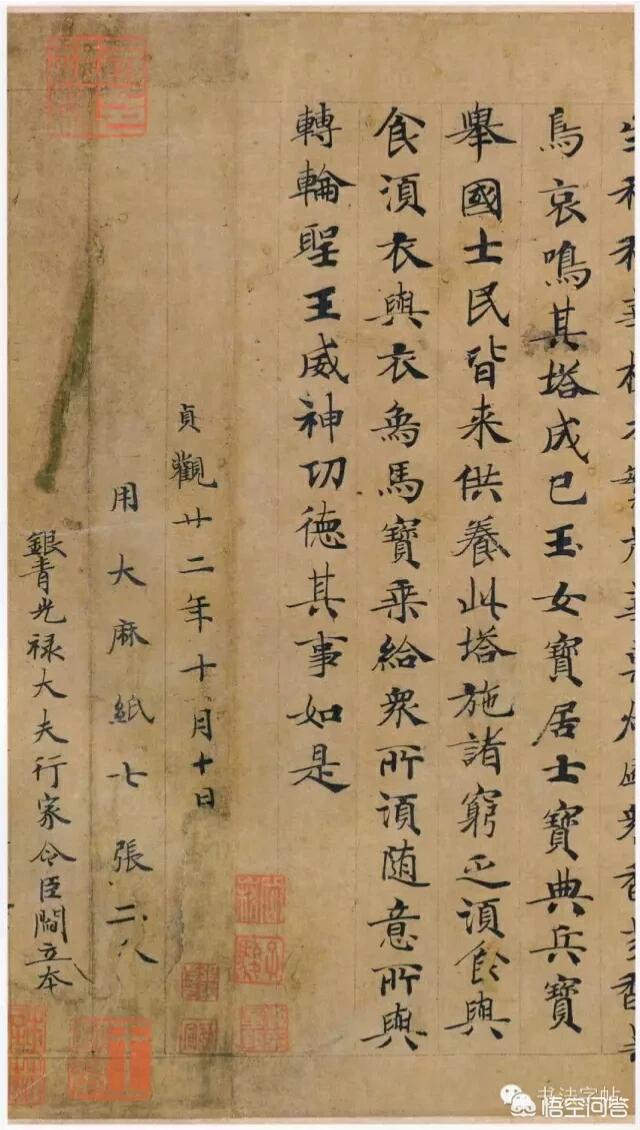 鳥哀鳴其塔成已玉女寶居士寶典兵寶
舉國士民皆来供養此塔施諸窮乏湏食與
食湏衣與衣象馬寶乗給衆所湏随意所與
轉輪聖王威神功德其事如是
貞觀廿二年十月十日
用大麻紙七張二分
銀青光禄大夫行家令臣閻立本
书法字帖
悟空问答